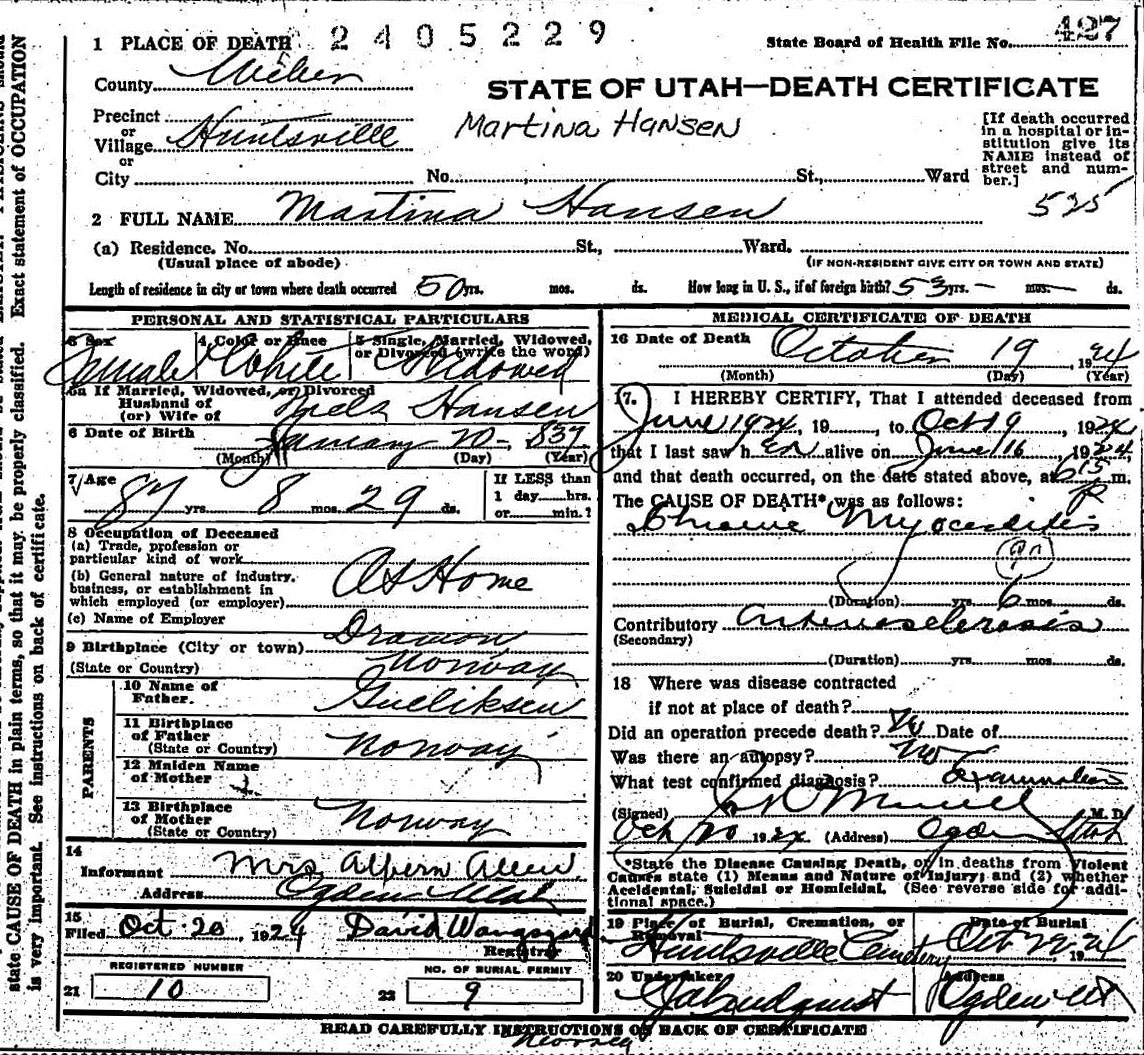 state CAUSE OF DEATH in plain terms, so that it may be properly classified. Exact statement of OCCUPATION
is very important. See instructions on back of certificate.
1 PLACE OF DEATH 2405229
State Board of Health File No. 427
County Weber
STATE OF UTAH—DEATH CERTIFICATE
Precinct
or
Village Huntsville
Martina Hansen
[If death occurred
in a hospital or in-
stitution give its
NAME instead of
street and num-
ber.]
or
City No. St., Ward
525
2 FULL NAME Martina Hansen
(a) Residence. No. St., Ward.
(Usual place of abode) (IF NON-RESIDENT GIVE CITY OR TOWN AND STATE)
Length of residence in city or town where death occurred 50 yrs. mos. ds. How long in U. S., if of foreign birth? 53 yrs. — mos. — ds.
PERSONAL AND STATISTICAL PARTICULARS
3 Sex 4 Color or Race 5 Single, Married, Widowed,
or Divorced (write the word)
Female White Widowed
5a If Married, Widowed, or Divorced
Husband of
(or) Wife of Niels Hansen
6 Date of Birth January 20 - 837
(Month) (Day) (Year)
7 Age 87 yrs. 8 mos. 29 ds.
If LESS than
1 day hrs.
or min.?
8 Occupation of Deceased
(a) Trade, profession or
particular kind of work
(b) General nature of industry,
business, or establishment in
which employed (or employer)
At Home
(c) Name of Employer
9 Birthplace (City or town)
(State or Country) Norway
PARENTS
10 Name of
Father. Gulliksen
11 Birthplace
of Father
(State or Country) Norway
12 Maiden Name
of Mother
13 Birthplace
of Mother
(State or Country) Norway
14
Informant Mrs Allen
Address Ogden Utah
15
Filed Oct 20, 1924 David Wangsgard
Registrar
REGISTERED NUMBER
21 10
NO. OF BURIAL PERMIT
22 9
MEDICAL CERTIFICATE OF DEATH
16 Date of Death October 19 1924
(Month) (Day) (Year)
17. I HEREBY CERTIFY, That I attended deceased from
June 1924, 19, to Oct 19, 1924
that I last saw her alive on June 16, 1924,
and that death occurred, on the date stated above, at 6 15 P m.
The CAUSE OF DEATH* was as follows:
Chronic Myocarditis
90
(Duration) yrs. 6 mos. ds.
Contributory Arteriosclerosis
(Secondary)
(Duration) yrs. mos. ds.
18 Where was disease contracted
if not at place of death?
Did an operation precede death? No Date of
Was there an autopsy? No
What test confirmed diagnosis? Examination
(Signed) M. D.
Oct 20 1924 (Address) Ogden Utah
*State the Disease Causing Death, or in deaths from Violent
Causes state (1) Means and Nature of Injury; and (2) whether
Accidental, Suicidal or Homicidal. (See reverse side for addi-
tional space.)
19 Place of Burial, Cremation, or
Removal
Huntsville Cemetery
Date of Burial
Oct 22, 1924
20 Undertaker
Address
Ogden, Ut
READ CAREFULLY INSTRUCTIONS ON BACK OF CERTIFICATE